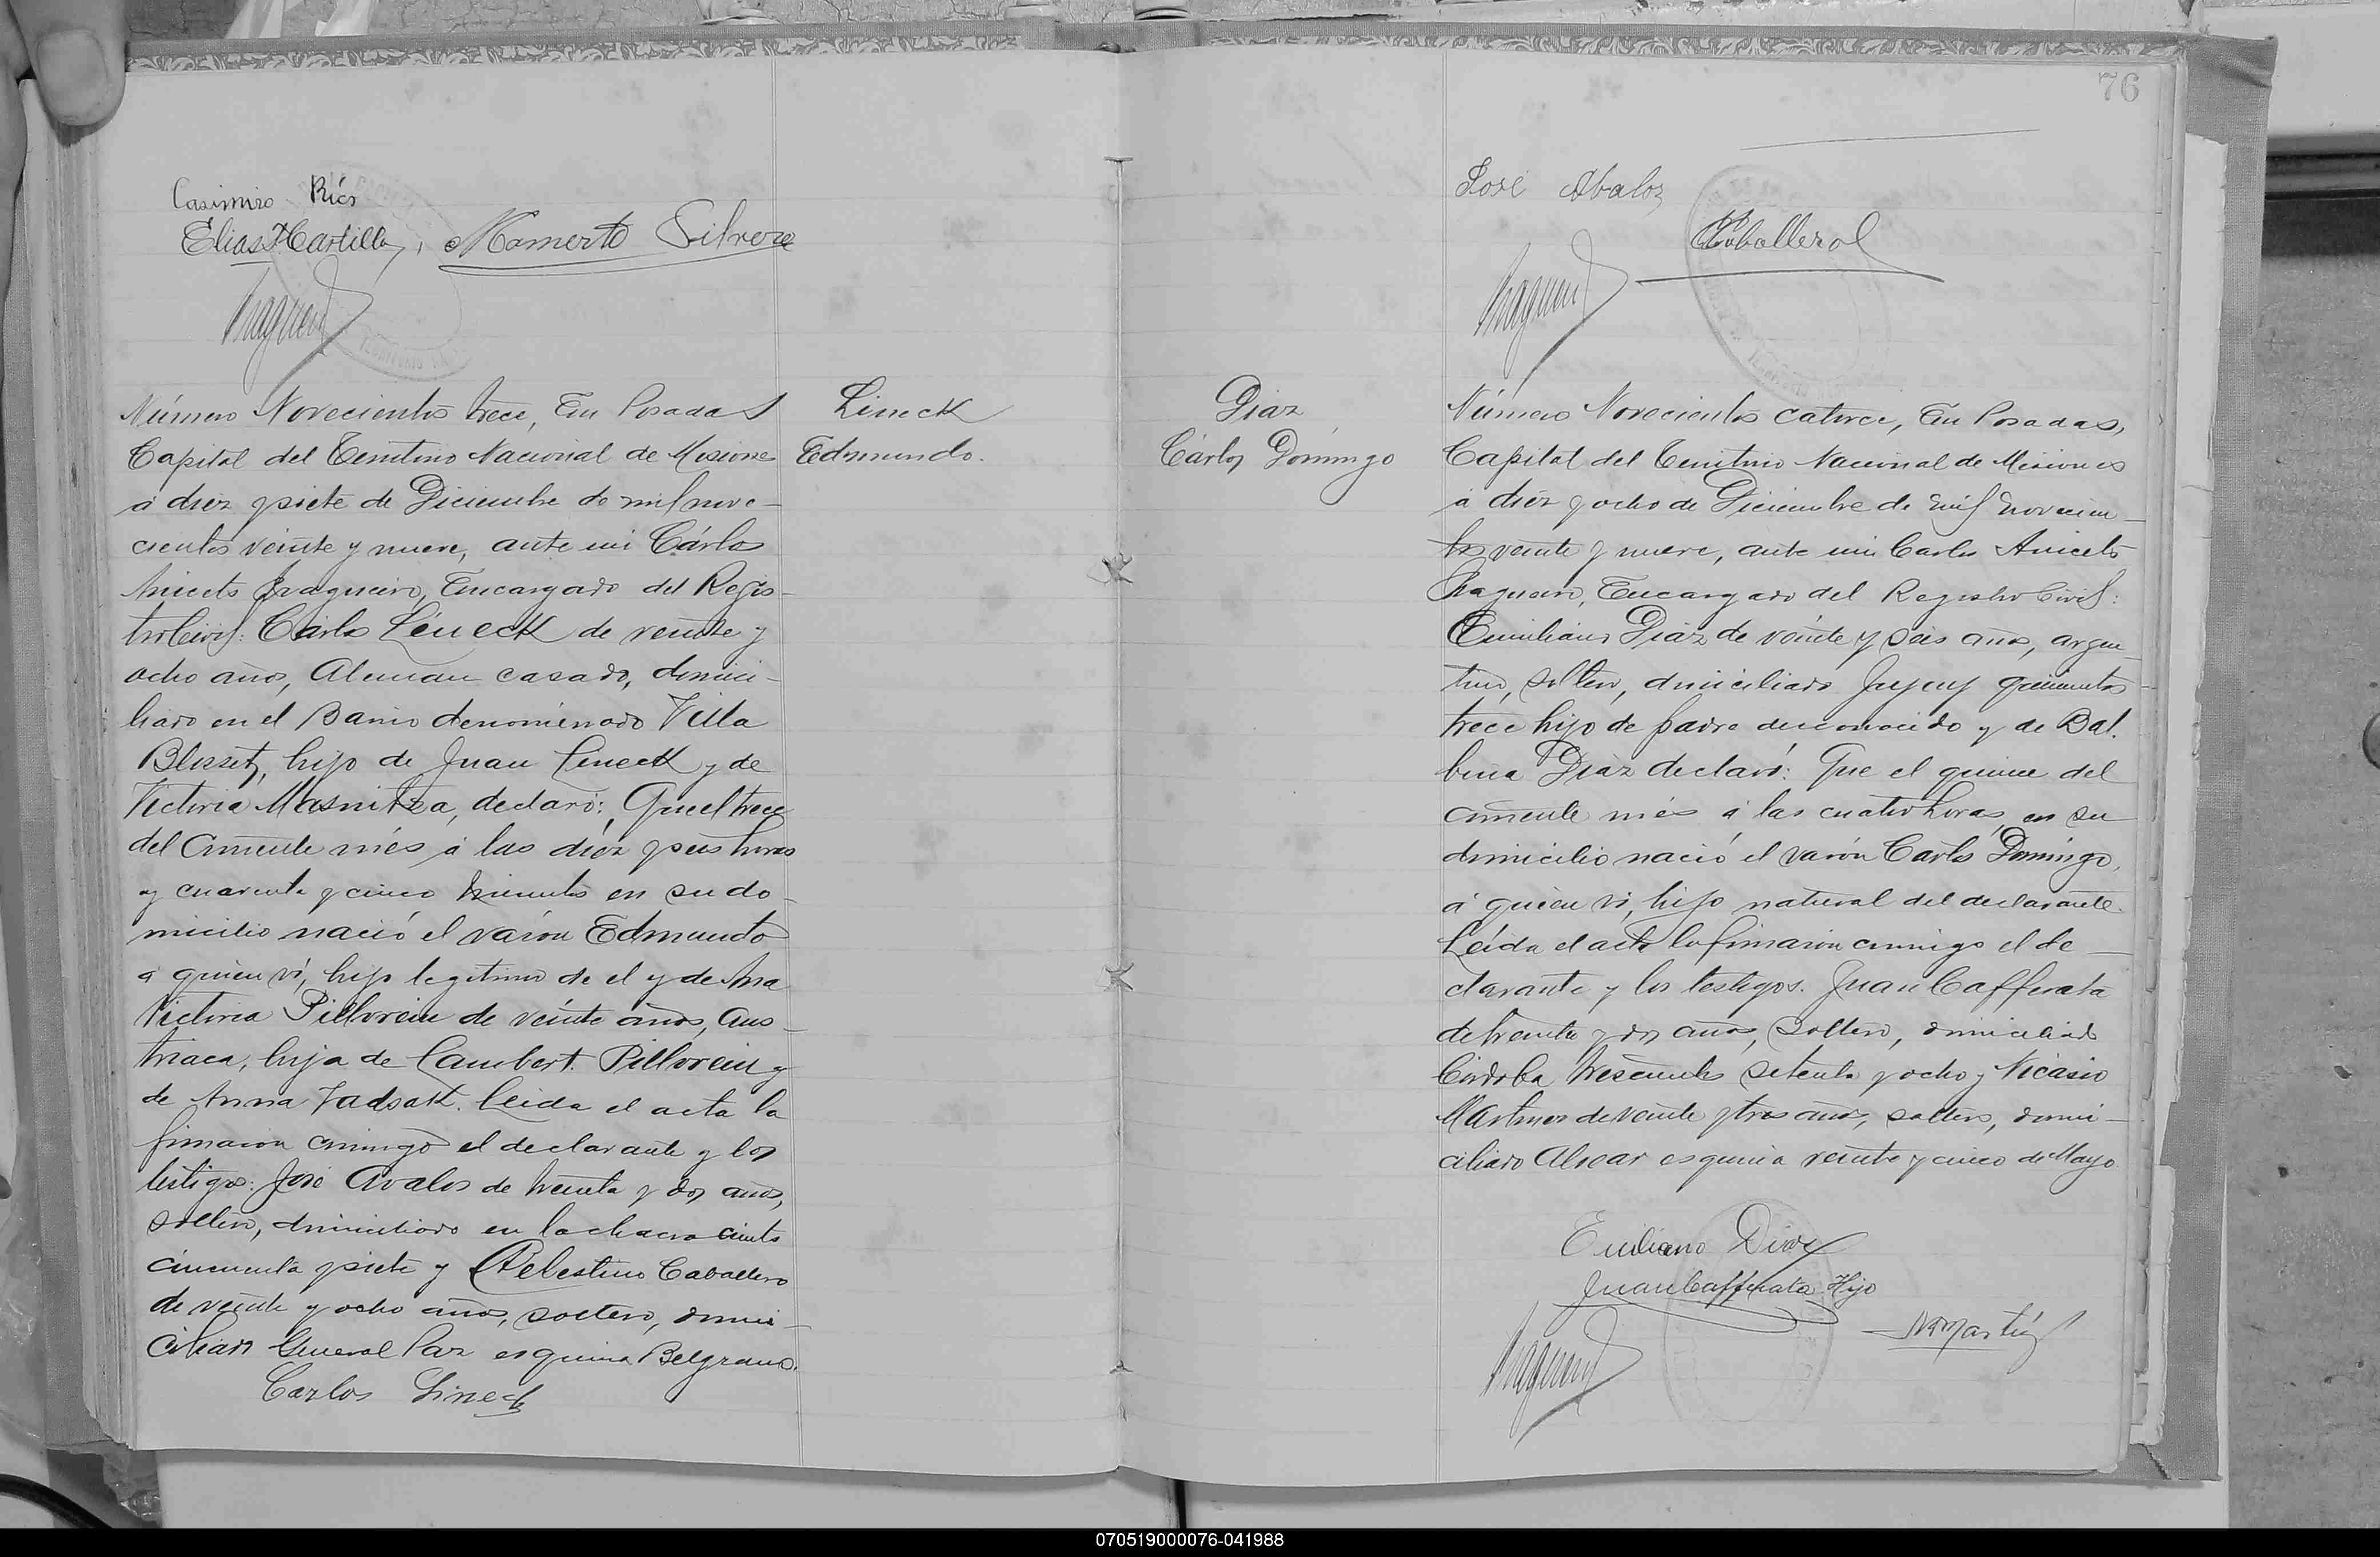 Casimiro Ríos
Elias Martilla, Mamerto Silvero
Lineck
Edmundo.
Número Novecientos trece, En Posadas
Capital del Territorio Nacional de Misiones
á diez y siete de Diciembre de mil nove-
cientos veinte y nueve, ante mi Cárlos
Aniceto Fragueiro, Encargado del Regis-
tro Civil: Carlos Lineck de veinte y
ocho años, Aleman casado, domici-
liado en el Barrio denominado Villa
Blosset, hijo de Juan Lineck y de
Victoria Masnitza, declaró: Que el trece
del corriente més á las diez y seis horas
y cuarenta y cinco minutos en su do-
micilio nació el varón Edmundo
a quien ví, hijo legitimo de el y de Ana
Victoria Pillorein de veinte años, aus-
triaca, hija de Lambert Pillorein y
de Anna Vadsak. Leida el acta la
firmaron conmigo el declarante y los
testigos: José Avalos de treinta y dos años,
soltero, domiciliado en la chacra ciento
cincuenta y siete y Celestino Caballero
de veinte y ocho años, soltero, domi-
ciliado General Paz esquina Belgrano.
Carlos Lineck
76
José Abalos
Caballero
Diaz
Cárlos Domingo
Número Novecientos catorce, En Posadas,
Capital del Territorio Nacional de Misiones
á diez y ocho de Diciembre de mil novecien-
tos veinte y nueve, ante mi Carlos Aniceto
Fragueiro, Encargado del Registro Civil:
Emiliano Diaz de veinte y seis años, argen-
tino, soltero, domiciliado Jujuy quinientos
trece hijo de padre desconocido y de Bal-
bina Diaz declaró: Que el quince del
corriente més á las cuatro horas, en su
domicilio nació el varón Carlos Domingo,
á quien ví, hijo natural del declarante.
Leída el acta la firmaron conmigo el de-
clarante y los testigos. Juan Cafferata
de treinta y dos años, soltero, domiciliado
Córdoba trescientos setenta y ocho y Nicasio
Martinez de veinte y tres años, soltero, domi-
ciliado Alvear esquina veinte y cinco de Mayo
Emiliano Diaz
Juan Cafferata Hijo
N Martinez
070519000076-041988